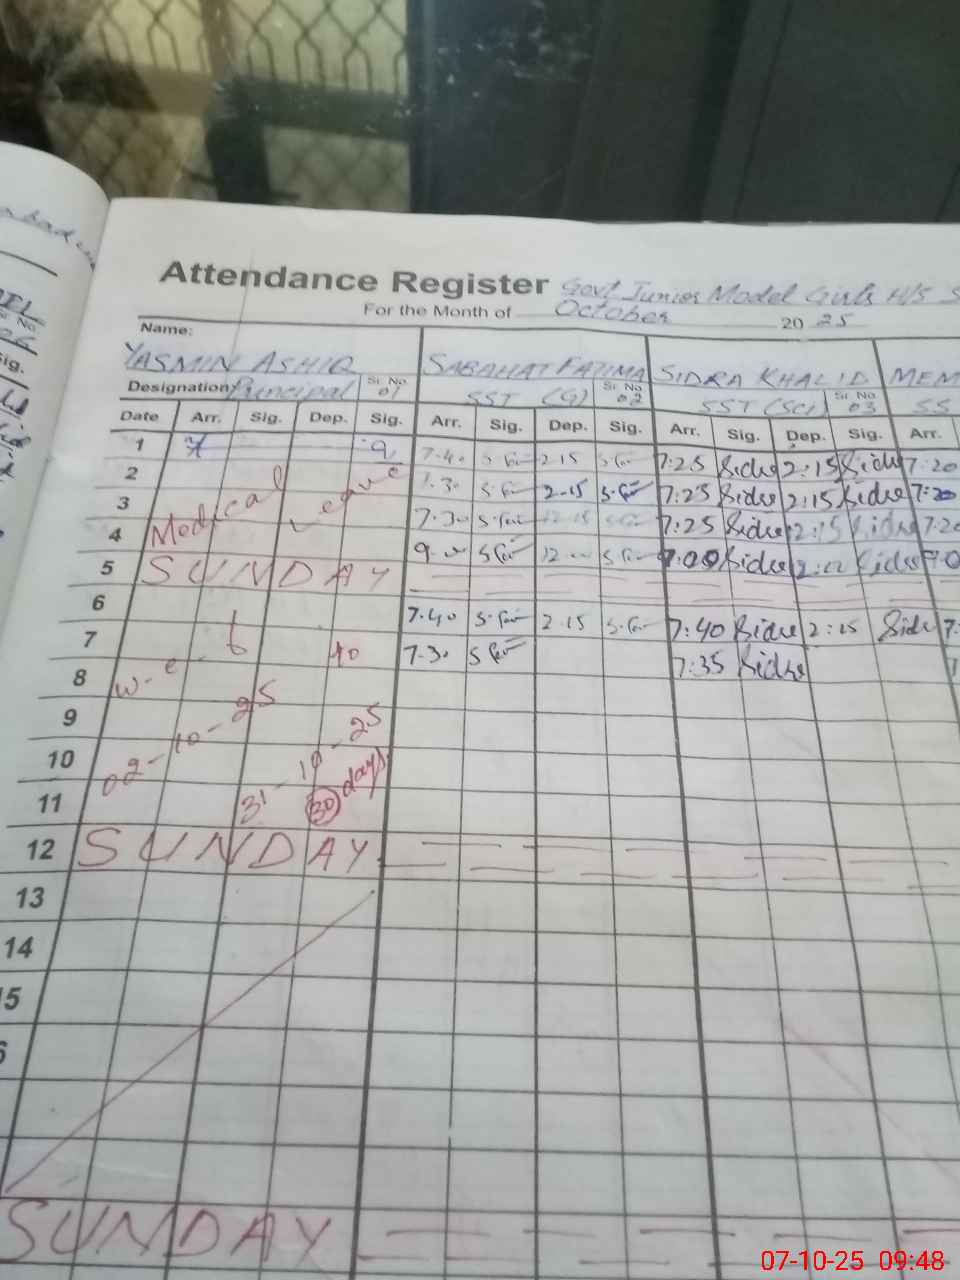 Attendance Register Govt Junior Model Girls H/S S
For the Month of October 2025
Name:
YASMIN ASHIQ SABAHAT FATIMA SIDRA KHALID MEM
Designation Principal Sr. No. 01 SST (G) Sr. No. 02 SST (Sci) Sr. No. 03 SS
Date Arr. Sig. Dep. Sig. Arr. Sig. Dep. Sig. Arr. Sig. Dep. Sig. Arr.
1 7.40 2.15 7:25 Sidra 2:15 Sidra 7:20
2 7.30 2.15 7:25 Sidra 2:15 Sidra 7:20
3 Medical Leave 7.30 7:25 Sidra 2:15 Sidra 7:20
4 9.00 12 7:00 Sidra Sidra
5 SUNDAY
6 7.40 2.15 7:40 Sidra 2:15 Sidra 7:
7 7.30 7:35 Sidra
8 w.e.f to
9 02-10-25
10 31-10-25
11 30 days
12 SUNDAY
13
14
15
SUNDAY
07-10-25 09:48